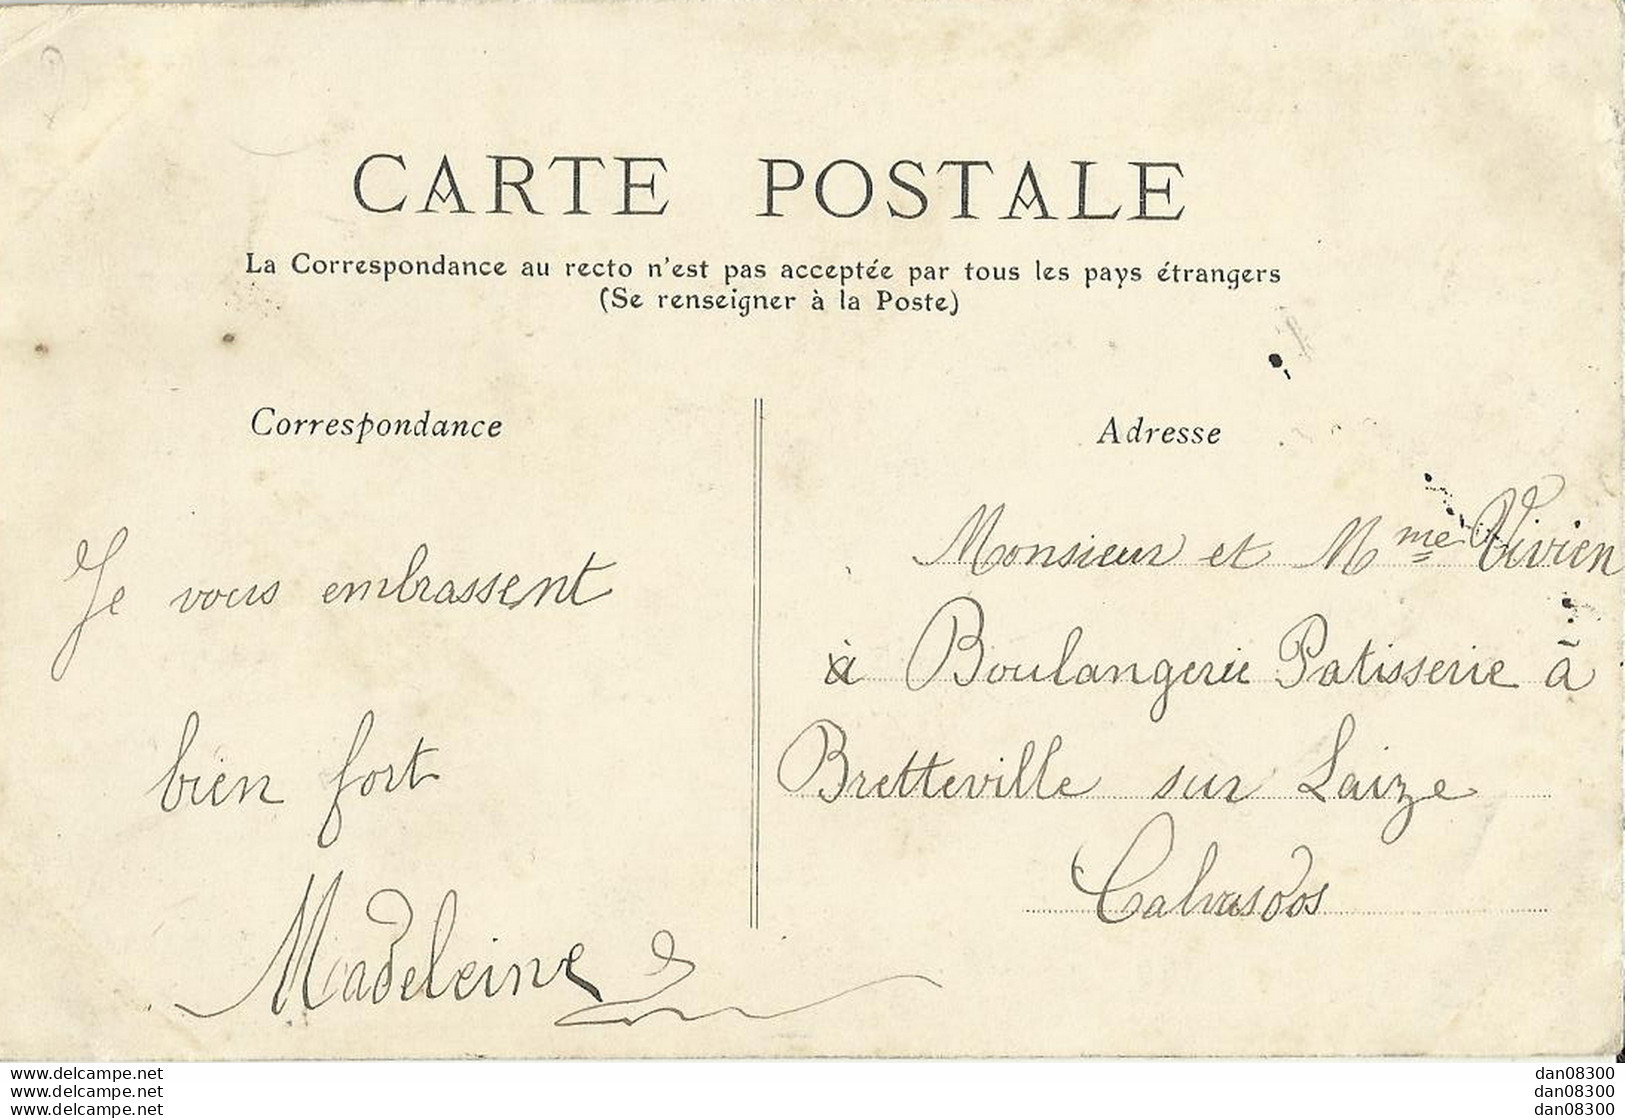 CARTE POSTALE
La Correspondance au recto n'est pas acceptée par tous les pays étrangers
(Se renseigner à la Poste)
Correspondance
Je vous embrassent
bien fort
Madeleine
Adresse
Monsieur et Mme Vivien
à Boulangerie Patisserie à
Bretteville sur Laize
Calvados
www.delcampe.net
www.delcampe.net
www.delcampe.net
dan08300
dan08300
dan08300